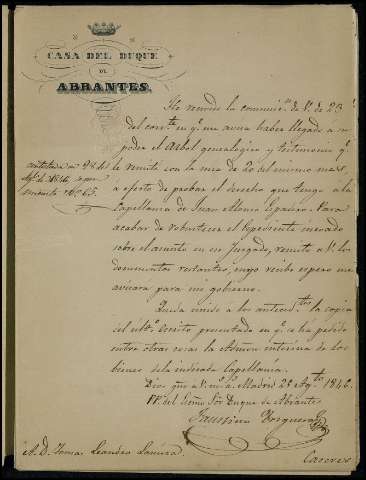 CASA DEL DUQUE
DE
ABRANTES.
He recivido la comunic.n de V. de 23
del corr.te en q.e me avisa haber llegado a su
poder el Arbol genealogico y testimonio q.e
le remití con la mia de 20 del mismo mes,
a efecto de probar el derecho que tengo a la
Capellania de Juan Alonso Espadero. Para
acabar de robustecer el Expediente incoado
sobre el asunto en ese Juzgado, remito a V. los
documentos restantes, cuyo recibo espero me
avisara para mi gobierno.
Queda unido a los anteced.tes la copia
del ult.o escrito presentado en q.e se há pedido
entre otras cosas la Admon interina de los
bienes de la indicada Capellanía.
Dios gue a V. m.s a.s Madrid 28 Ag.to 1846
PP. del Exmo Sor Duque de Abrantes
Faustino
contestada en 28 de
A. D. Tomas Leandro
Caceres